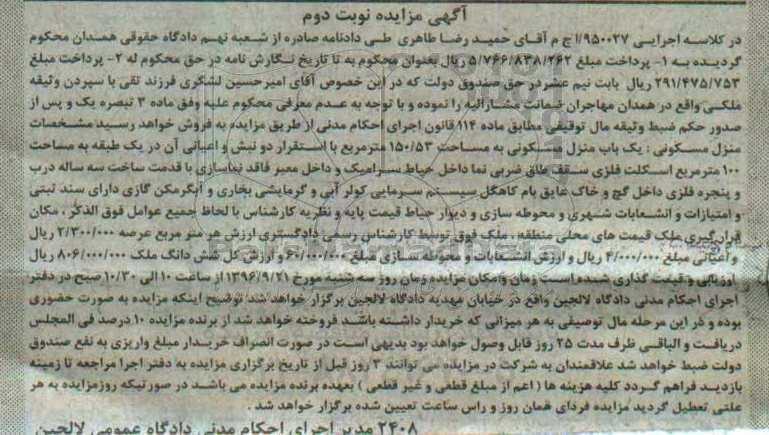 آگهی مزایده نوبت دوم
در کلاسه اجرایی ۹۵۰۰۲۷/ا ج م آقای حمید رضا طاهری طی دادنامه صادره از شعبه نهم دادگاه حقوقی همدان محکوم
گردیده به ۱- پرداخت مبلغ ۵/۷۶۶/۸۳۸/۲۶۲ ریال بعنوان محکوم به تا تاریخ نگارش نامه در حق محکوم له ۲- پرداخت مبلغ
۲۹۱/۴۷۵/۷۵۳ ریال بابت نیم عشر در حق صندوق دولت که در این خصوص آقای امیرحسین لشگری فرزند تقی با سپردن وثیقه
ملکی واقع در همدان مهاجران ضمانت مشارالیه را نموده و با توجه به عدم معرفی محکوم علیه وفق ماده ۳ تبصره یک و پس از
صدور حکم ضبط وثیقه مال توقیفی مطابق ماده ۱۱۴ قانون اجرای احکام مدنی از طریق مزایده به فروش خواهد رسید مشخصات
منزل مسکونی : یک باب منزل مسکونی به مساحت ۱۵۰/۵۳ مترمربع با استقرار دو نبش و اعیانی آن در یک طبقه به مساحت
۱۰۰ مترمربع اسکلت فلزی سقف طاق ضربی نما داخل حیاط سرامیک و داخل معبر فاقد نماسازی با قدمت ساخت سه ساله درب
و پنجره فلزی داخل گچ و خاک عایق بام کاهگل سیستم سرمایی کولر آبی و گرمایشی بخاری و آبگرمکن گازی دارای سند ثبتی
و امتیازات و انشعابات شهری و محوطه سازی و دیوار حیاط قیمت پایه و نظریه کارشناس با لحاظ جمیع عوامل فوق الذکر ، مکان
قرارگیری ملک قیمت های محلی منطقه ، ملک فوق توسط کارشناس رسمی دادگستری ارزش هر متر مربع عرصه ۲/۳۰۰/۰۰۰ ریال
و اعیانی مبلغ ۴/۰۰۰/۰۰۰ ریال و ارزش انشعابات و محوطه سازی مبلغ ۶۰/۰۰۰/۰۰۰ و ارزش کل شش دانگ ملک ۸۰۶/۰۰۰/۰۰۰ ریال
ارزیابی و قیمت گذاری شده است زمان و مکان مزایده زمان روز سه شنبه مورخ ۱۳۹۶/۹/۲۱ از ساعت ۱۰ الی ۱۰/۳۰ صبح در دفتر
اجرای احکام مدنی دادگاه لالجین واقع در خیابان مهدیه دادگاه لالجین برگزار خواهد شد توضیح اینکه مزایده به صورت حضوری
بوده و در این مرحله مال توصیفی به هر میزانی که خریدار داشته باشد فروخته خواهد شد از برنده مزایده ۱۰ درصد فی المجلس
دریافت و الباقی ظرف مدت ۲۵ روز قابل وصول خواهد بود بدیهی است در صورت انصراف خریدار مبلغ واریزی به نفع صندوق
دولت ضبط خواهد شد علاقمندان به شرکت در مزایده می توانند ۳ روز قبل از تاریخ برگزاری مزایده به دفتر اجرا مراجعه تا زمینه
بازدید فراهم گردد کلیه هزینه ها ( اعم از مبلغ قطعی و غیر قطعی ) بعهده برنده مزایده می باشد در صورتیکه روزمزایده به هر
علتی تعطیل گردید مزایده فردای همان روز و راس ساعت تعیین شده برگزار خواهد شد .
۲۴۰۸ مدیر اجرای احکام مدنی دادگاه عمومی لالجین